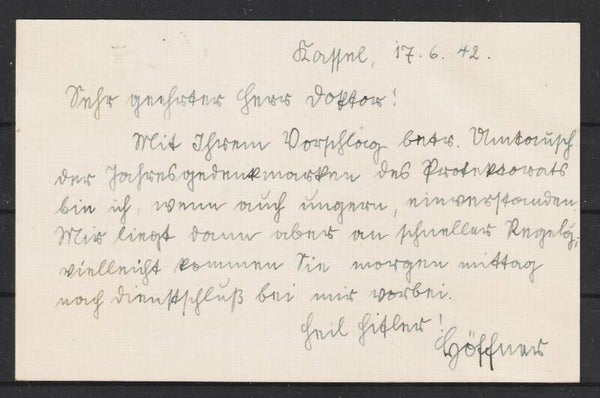 Kassel, 17.6.42.
Sehr geehrter Herr Doktor!
Mit Ihrem Vorschlag betr. Umtausch
der Jahresgedenkmarken des Protektorats
bin ich, wenn auch ungern, einverstanden.
Mir liegt dann aber an schneller Regelg.,
vielleicht kommen Sie morgen mittag
nach Dienstschluß bei mir vorbei.
Heil Hitler!
Höffner